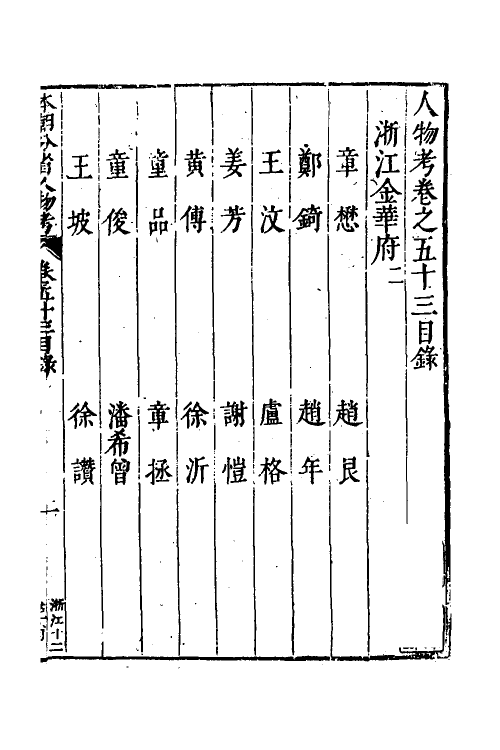 人物考卷之五十三目錄
浙江金華府二
章懋 趙艮
鄭錡 趙年
王汶 盧格
姜芳 謝愷
黃傅 徐沂
童品 章拯
童俊 潘希曾
王坡 徐讚
本朝分省人物考 卷五十三目錄 一
浙江十二